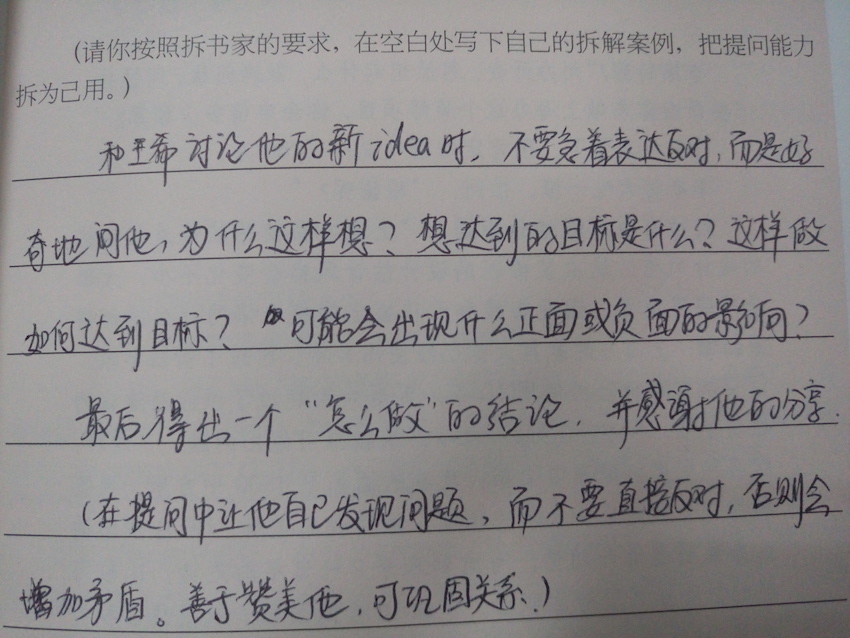 (请你按照拆书家的要求，在空白处写下自己的拆解案例，把提问能力
拆为己用。)
和王希讨论他的新idea时，不要急着表达反对，而是好
奇地问他，为什么这样想？想达到的目标是什么？这样做
如何达到目标？可能会出现什么正面或负面的影响？
最后得出一个“怎么做”的结论，并感谢他的分享.
(在提问中让他自己发现问题，而不要直接反对，否则会
增加矛盾。善于赞美他，可巩固关系.)